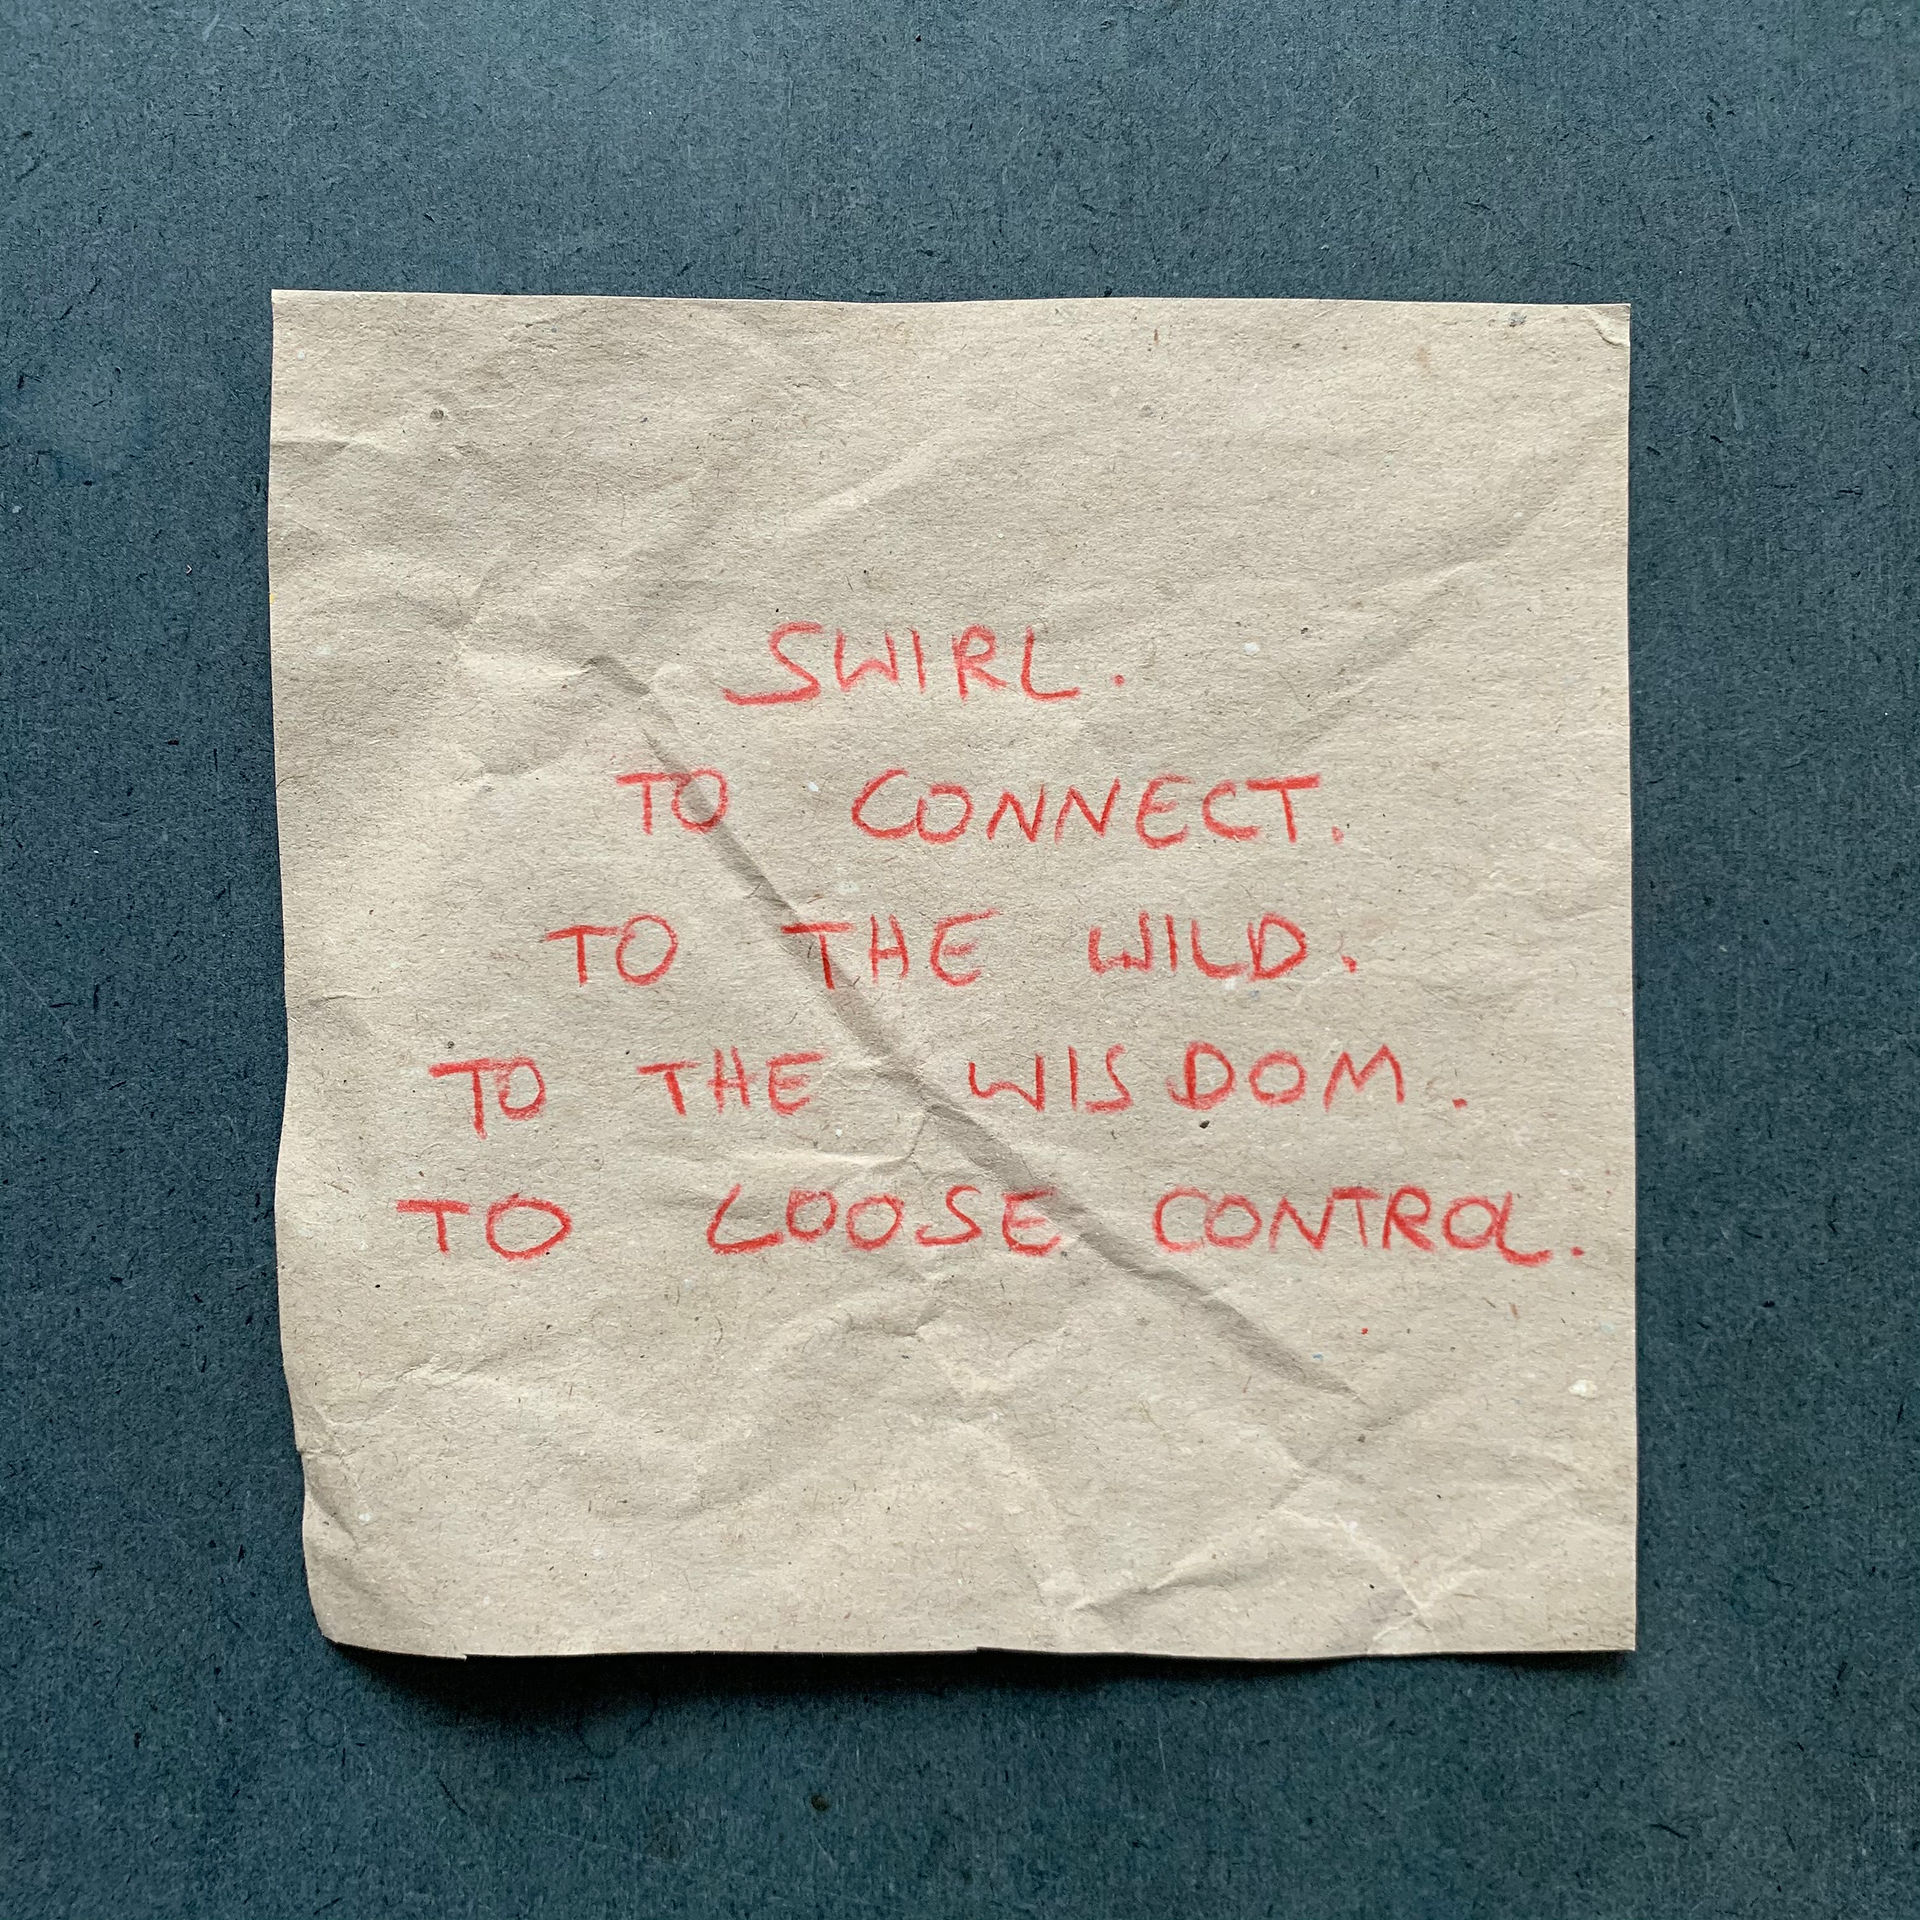 SWIRL.
TO CONNECT.
TO THE WILD.
TO THE WISDOM.
TO LOOSE CONTROL.